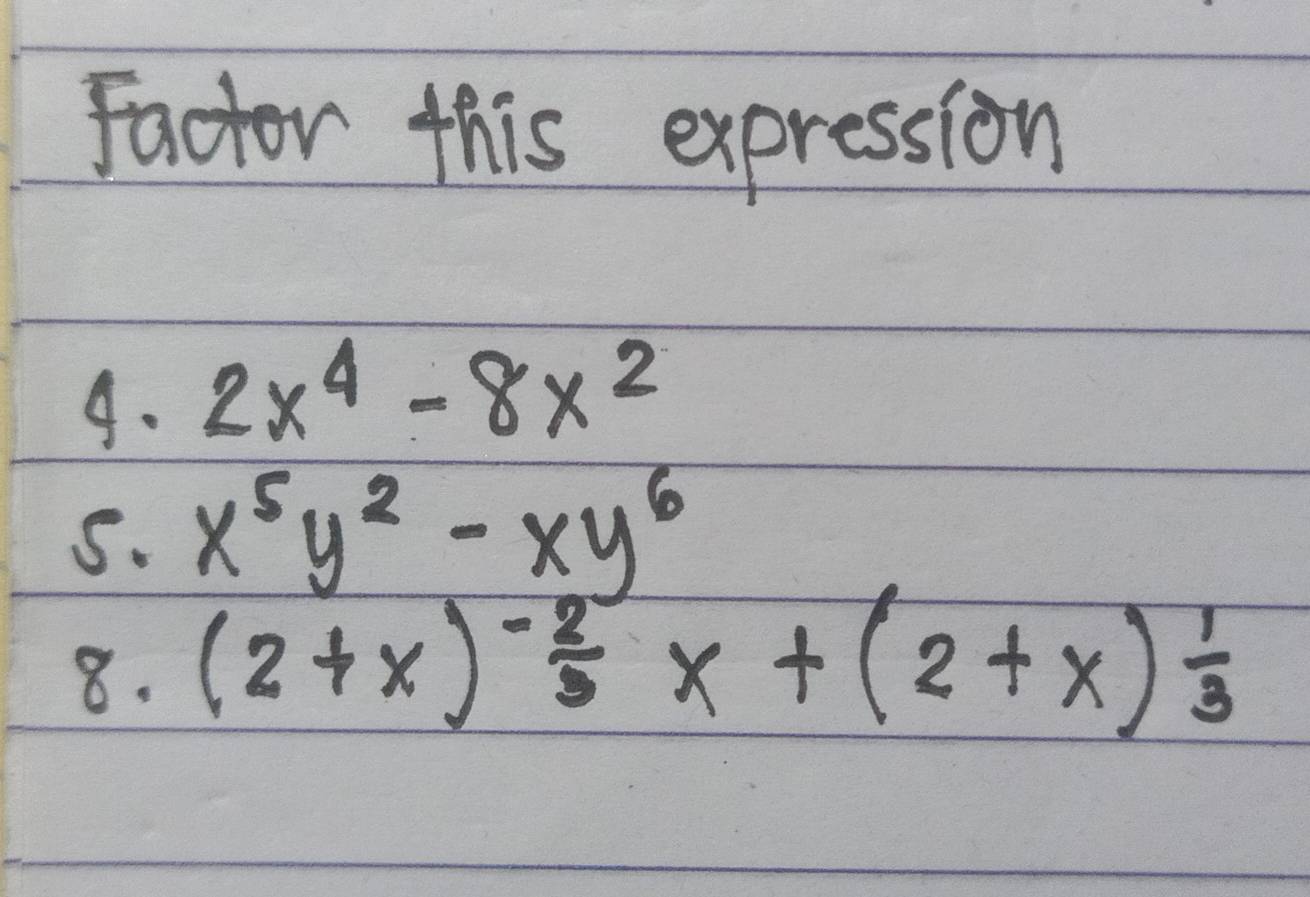 Factor this expression
4. 2x⁴ - 8x²
5. x⁵y² - xy⁶
8. (2+x)^-2/3 x + (2+x)^1/3